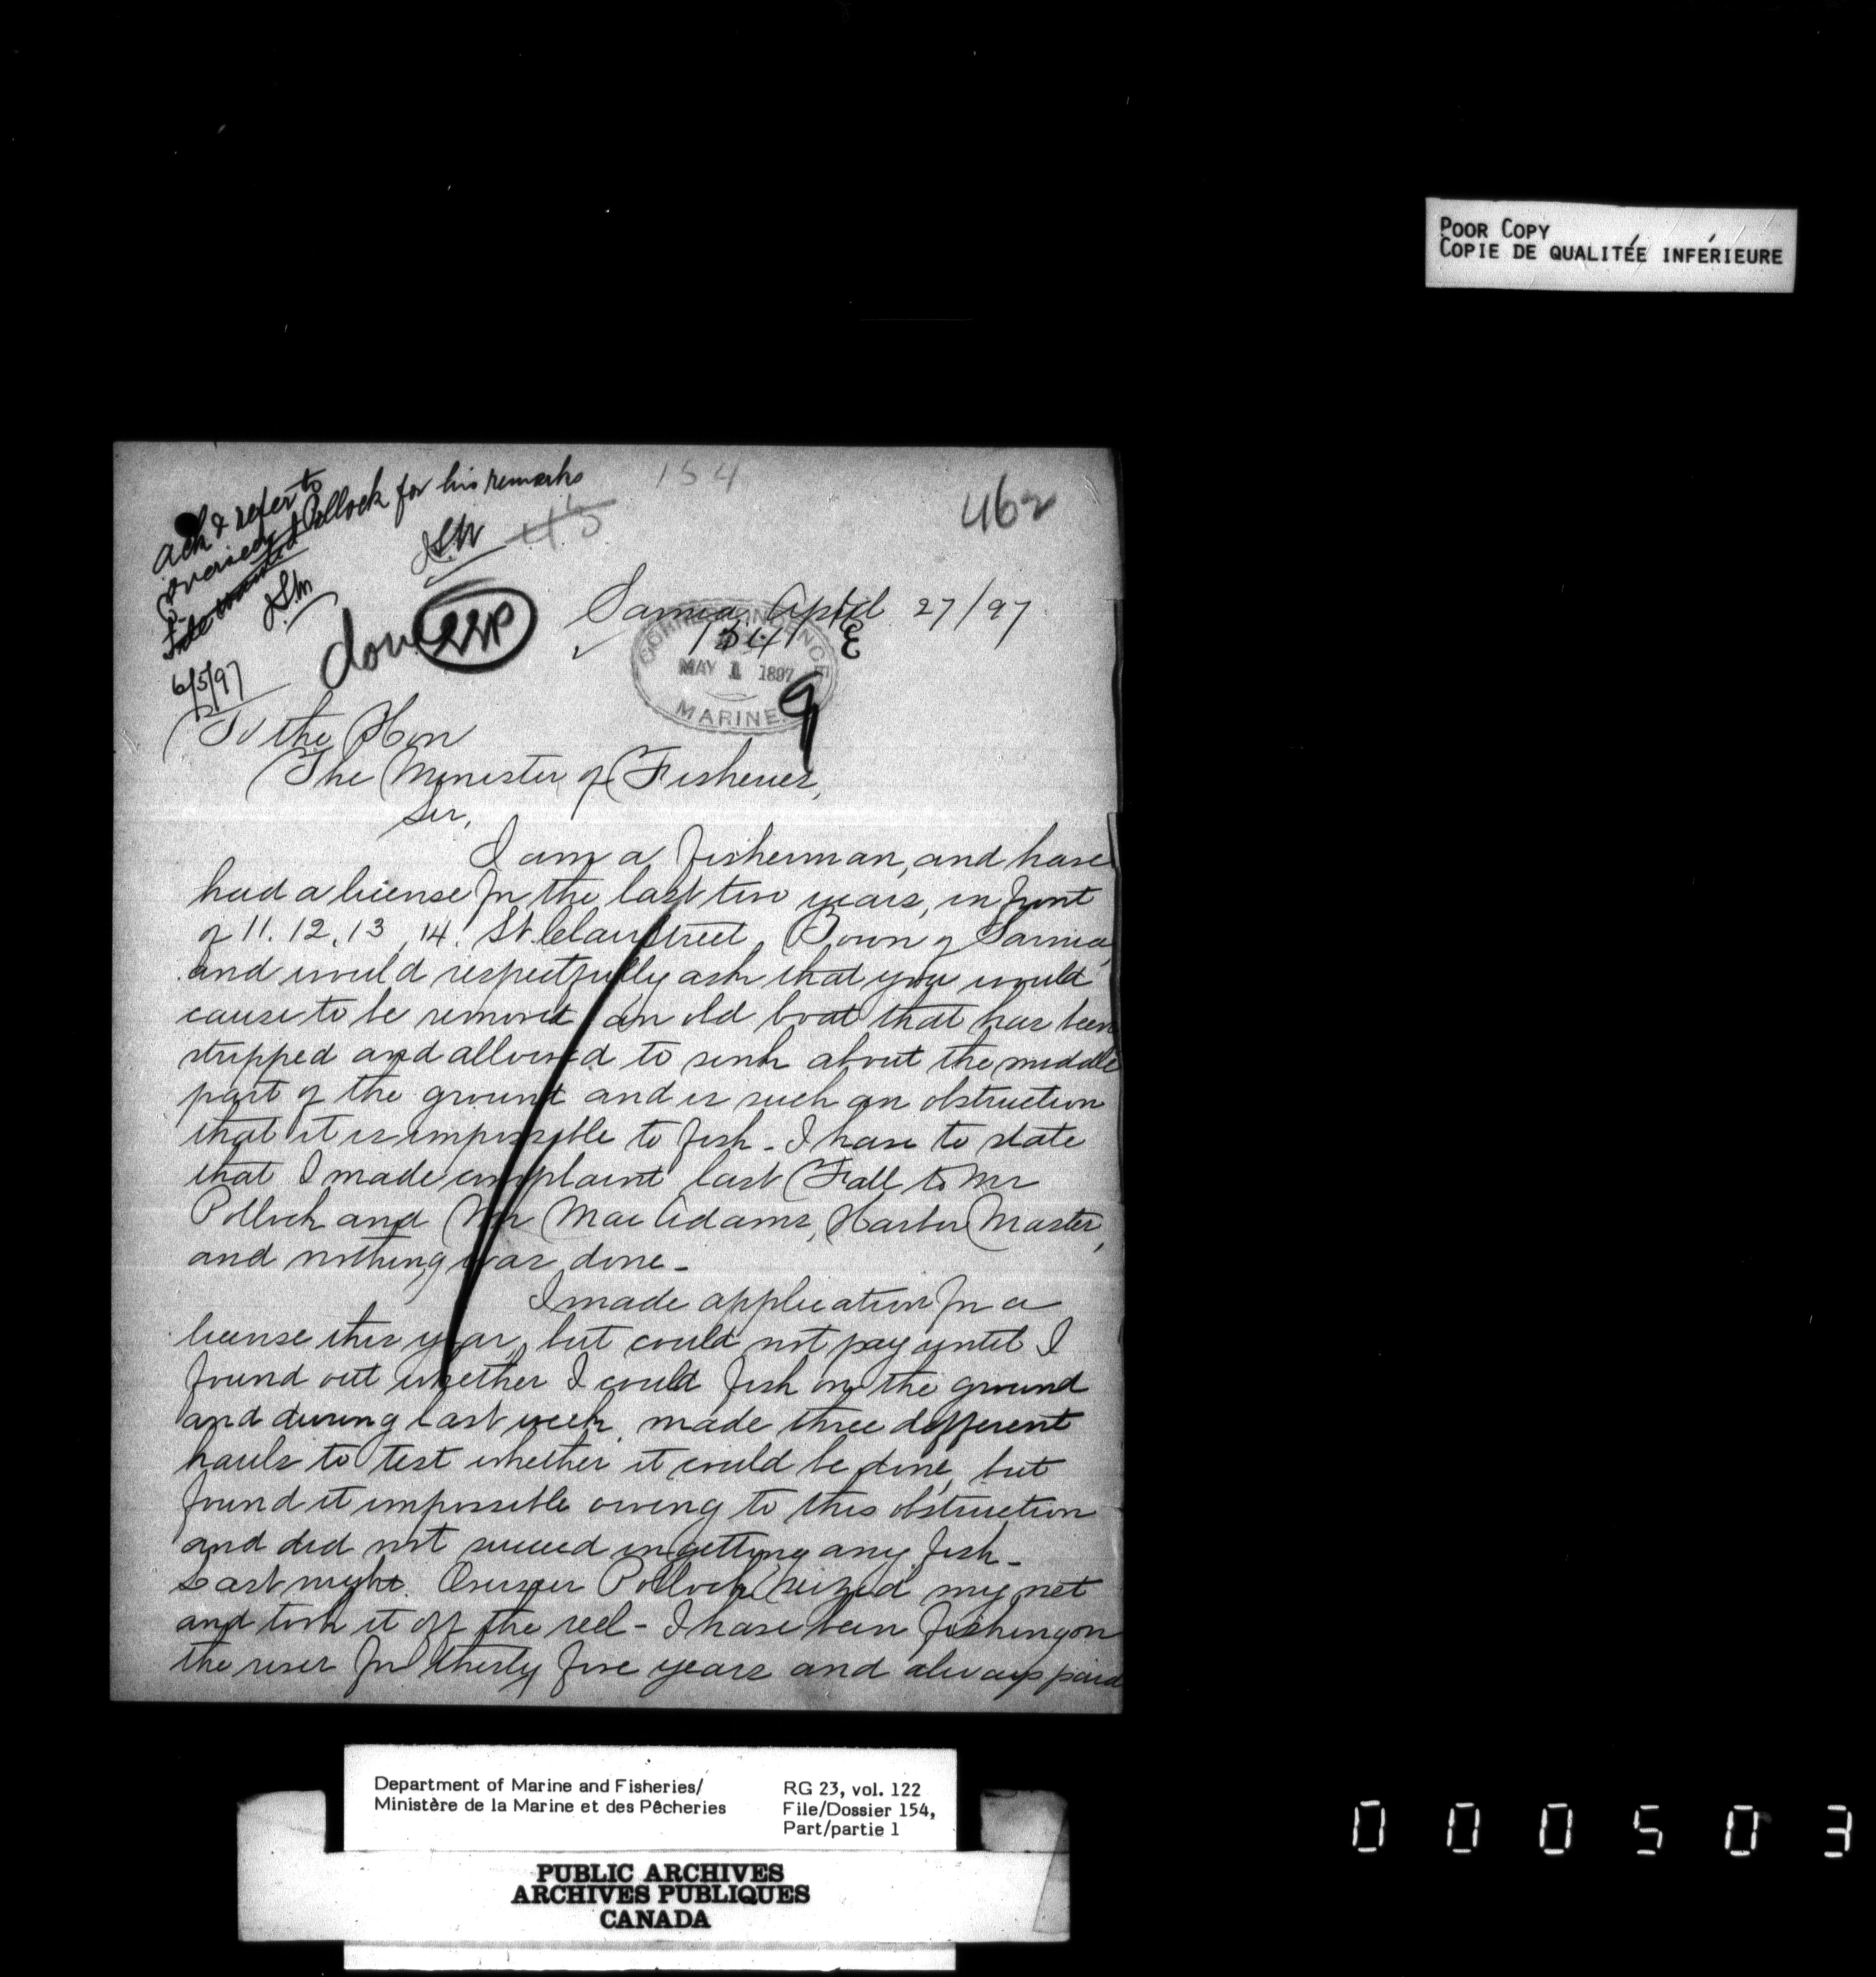 POOR COPY
COPIE DE QUALITÉE INFÉRIEURE
154
462
45
Ack & refer to
Overseer Pollock for his remarks
6/5/97
done
Sarnia April 27/97
CORRESPONDENCE
154
MAY 1 1897
MARINE
9
To the Hon
The Minister of Fisheries,
Sir,
I am a fisherman, and have
had a license for the last two years, in front
of 11. 12. 13, 14. St. Clair Street, Town of Sarnia,
and would respectfully ask that you would
cause to be removed an old boat that has been
stripped and allowed to sink about the middle
part of the ground and is such an obstruction
that it is impossible to fish - I have to state
that I made complaint last Fall to Mr
Pollock and Mr Mac Adams, Harbor Master,
and nothing was done -
I made application for a
license this year, but could not pay until I
found out whether I could fish on the ground
and during last week, made three different
hauls to test whether it could be done, but
found it impossible owing to this obstruction
and did not succeed in getting any fish -
Last night. Overseer Pollock seized my net
and took it off the reel - I have been fishing on
the river for thirty five years and always paid
Department of Marine and Fisheries/
Ministère de la Marine et des Pêcheries
RG 23, vol. 122
File/Dossier 154,
Part/partie 1
PUBLIC ARCHIVES
ARCHIVES PUBLIQUES
CANADA
000503